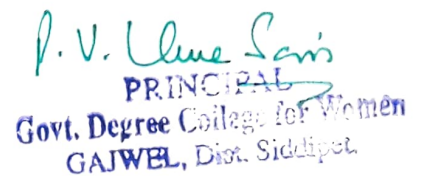 P. V.
PRINCIPAL
Govt. Degree College for Women
GAJWEL, Dist. Siddipet.